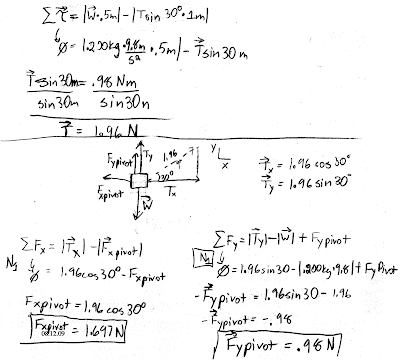 Στ⃗ = |W⃗·.5m| - |T⃗sin 30°·1m|
∅ = |.200kg·9.8m/s²·.5m| - T⃗sin30m
T⃗ sin30m = .98 Nm
sin30m sin30m
T⃗ = 1.96 N
Fypivot Ty 1.96 y x
30°
Fxpivot Tx
W⃗
T⃗x = 1.96 cos30°
T⃗y = 1.96 sin30°
ΣFx = |T⃗x| - |F⃗xpivot|
N1 ∅ = 1.96cos30° - Fxpivot
Fxpivot = 1.96 cos30°
Fxpivot = 1.697N
08.12.09
ΣFy = |T⃗y| - |W⃗| + Fypivot
N1
∅ = 1.96sin30 - |.200kg·9.8| + Fypivot
-F⃗ypivot = 1.96sin30 - 1.96
-F⃗ypivot = -.98
F⃗ypivot = .98N